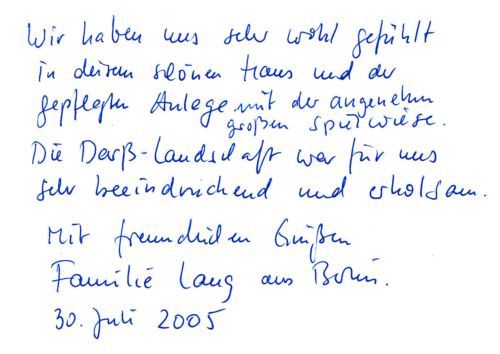 Wir haben uns sehr wohl gefühlt
in diesem schönen Haus und der
gepflegten Anlage mit der angenehm
großen Spielwiese.
Die Darß-Landschaft war für uns
sehr beeindruckend und erholsam.
Mit freundlichen Grüßen
Familie Lang aus
30. Juli 2005